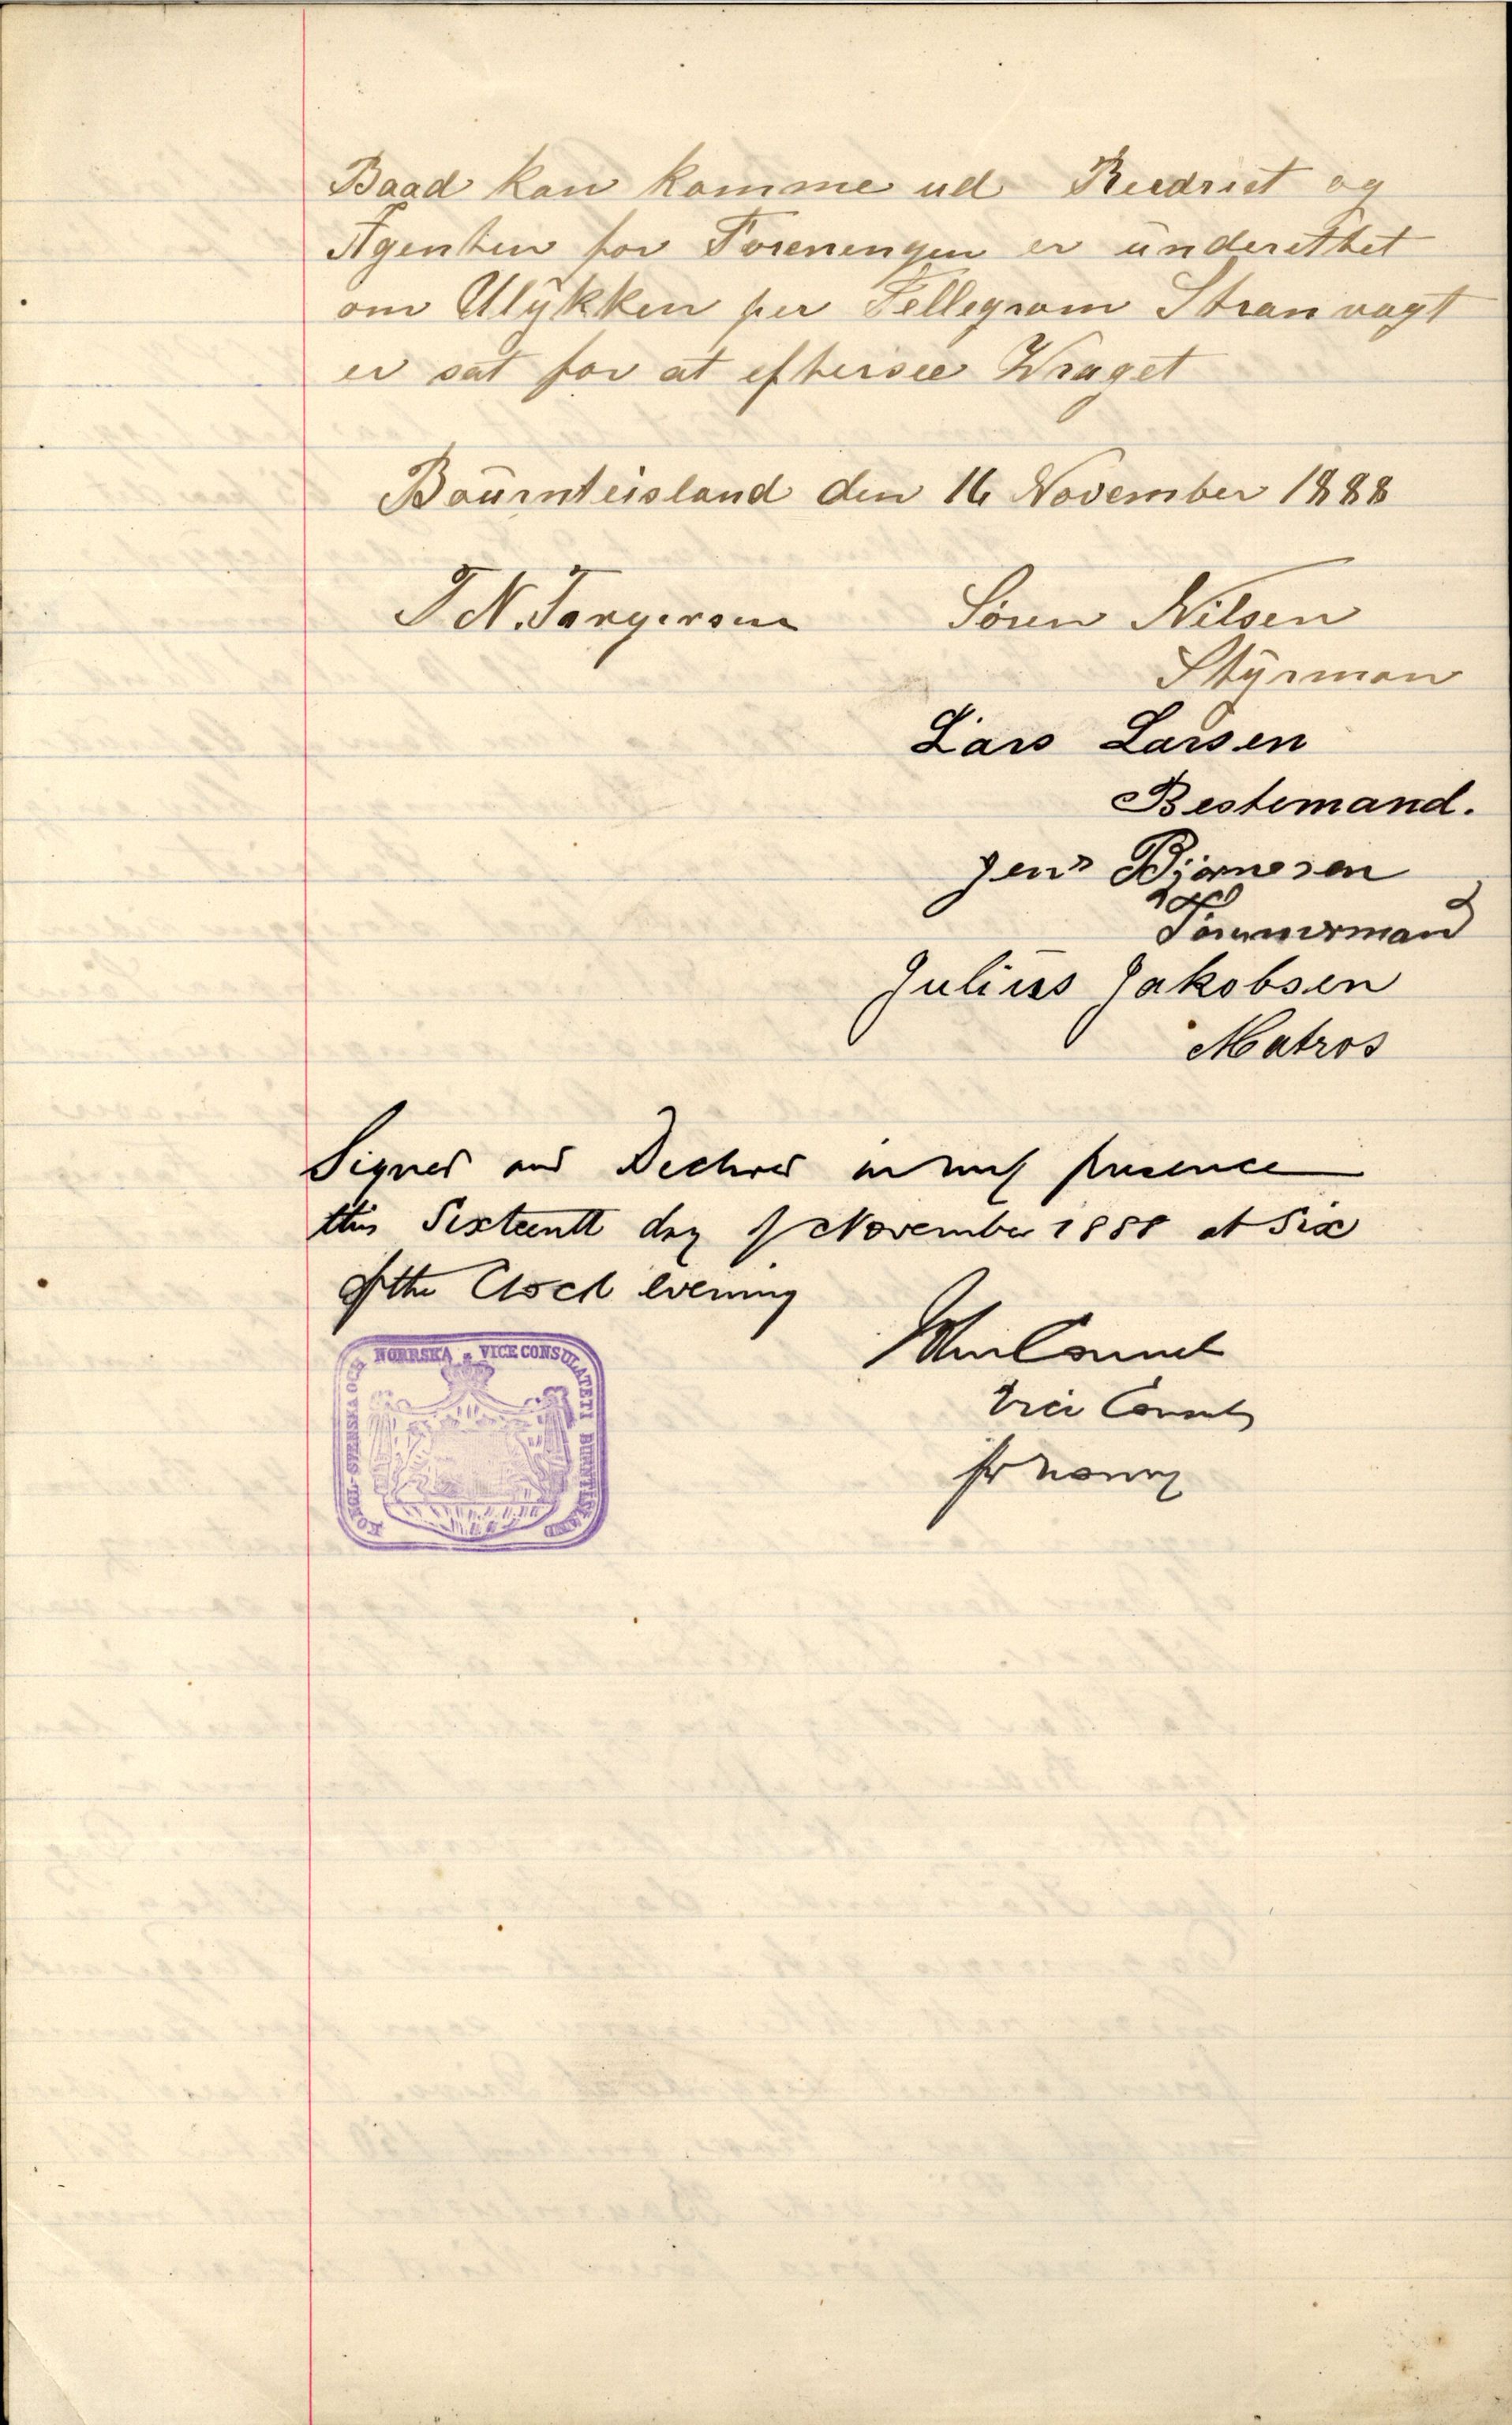 Baad kan komme ud Reedriet og
Agenten for Foreningen er ünderettet
om Ulÿkken per Tellegram Stranvagt
er sat for at eftersee Wraget
Boürnteisland den 16 November 1888
T N. Torgersen Sören Nilsen
Stÿrman
Lars Larsen
Bestemand.
Jens Bjørnesen
Tømmermand
Julius Jakobsen
Matros
Signed and Declared in my presence
this Sixteenth day of November 1888 at Six
of the Clock evening
Vice Consul
for Norway
KONGL. SVENSKA OCH NORRSKA VICE CONSULATETI BURNTISLAND